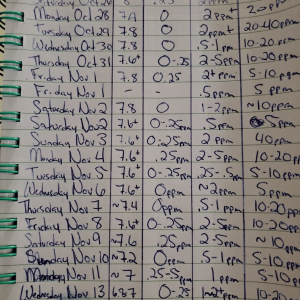 Monday Oct 28 7.8 0 2ppm 20ppm
Tuesday Oct 29 7.8 0 2ppm+ 20-40ppm
Wednesday Oct 30 7.8 0 .5-1ppm 10-20ppm
Thursday Oct 31 7.6+ 0-.25 2-5ppm 10-20ppm
Friday Nov 1 7.8 0.25 2+ppm 5-10ppm
Friday Nov 1 - - .5ppm 5ppm
Saturday Nov 2 7.8 0 1-2ppm ~10ppm
Saturday Nov 2 7.6+ 0-.25 .5ppm 5ppm
Sunday Nov 3 7.6+ 0.25ppm 2ppm 40ppm
Monday Nov 4 7.6+ .25ppm 2-5ppm 10-20
Tuesday Nov 5 7.6+ 0-.25ppm .25-.5ppm 5-10ppm
Wednesday Nov 6 7.6+ 0ppm ~2ppm 5ppm
Thursday Nov 7 ~7.4 0ppm .5-1ppm 10-20
Friday Nov 8 7.6+ 0-.25ppm 2-5ppm 10-20
Saturday Nov 9 ~7.6 .25ppm 2-5ppm ~10
Sunday Nov 10 ~7.2 0ppm .5-1ppm 5-10
Monday Nov 11 ~7 .25-.5ppm 1ppm 5-10
Wednesday Nov 13 0-.25 10-20